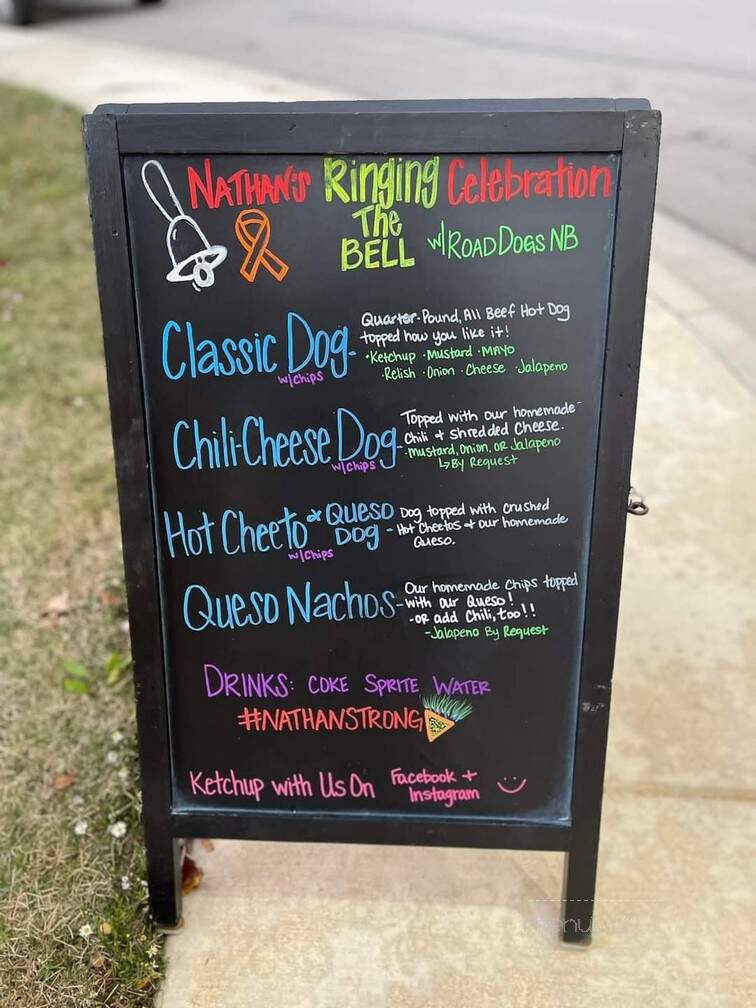 NATHAN'S Ringing Celebration
The
BELL w/ ROAD DOGS NB
Classic Dog- Quarter-Pound, All Beef Hot Dog
topped how you like it!
w/Chips ·Ketchup ·Mustard ·MAYO
·Relish ·Onion ·Cheese ·Jalapeno
Chili-Cheese Dog- Topped with our homemade
Chili + Shredded Cheese.
w/Chips ·Mustard, Onion, OR Jalapeno
↳By Request
Hot Cheeto & QUESO DOG - Dog topped with crushed
Hot Cheetos + our homemade
w/Chips Queso.
Queso Nachos- Our homemade Chips topped
with our Queso!
-OR add Chili, too!!
-Jalapeno By Request
DRINKS: COKE SPRITE WATER
#NATHANSTRONG
Ketchup with Us On Facebook +
Instagram